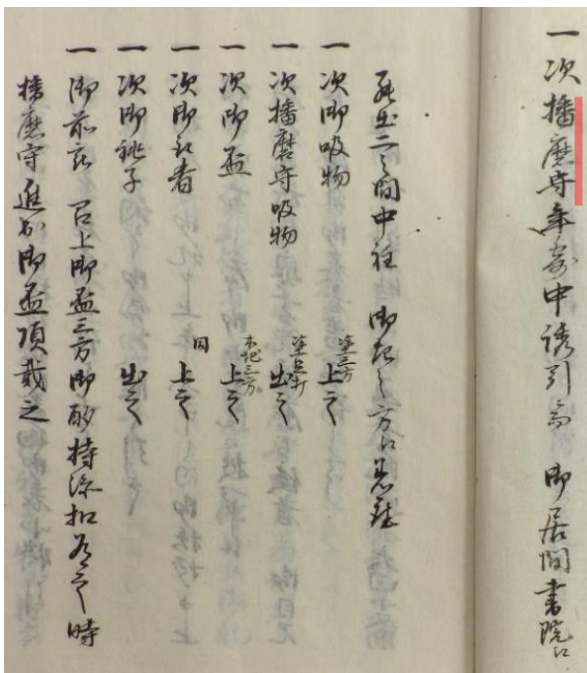 一次播磨守年寄中誘引而 御居間書院江
罷出二之間中程 御起之方江着座
一次御吸物 塗三方 上之
一次播磨守吸物 塗足打 出之
一次御盃 木地三方 上之
一次御肴 同 上之
一次御銚子 出之
一御前 召上御盃三方御酌持添扣有之時
播磨守進出御盃頂戴之